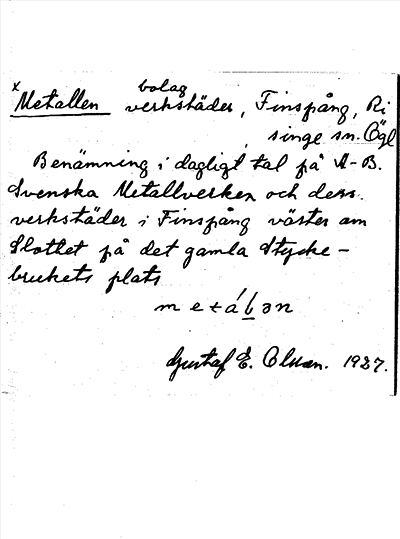 x Metallen bolag
verkstäder, Finspång, Ri
singe sn. Ögl
Benämning i dagligt tal på A-B.
Svenska Metallverken och dess
verkstäder i Finspång väster om
Slottet på det gamla Stycke-
brukets plats
Gustaf E. 1927.